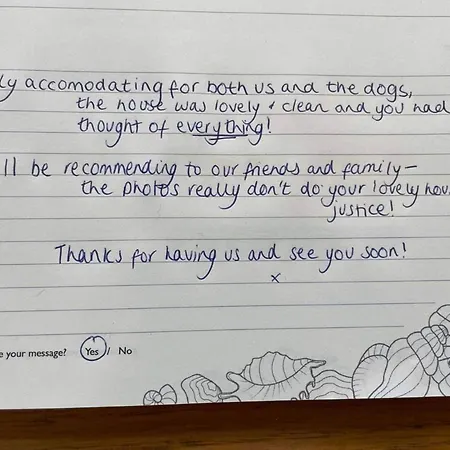 ly accomodating for both us and the dogs,
the house was lovely & clean and you had
thought of everything!
ll be recommending to our friends and family -
the photos really don't do your lovely hou
justice!
Thanks for having us and see you soon!
x
e your message? Yes / No